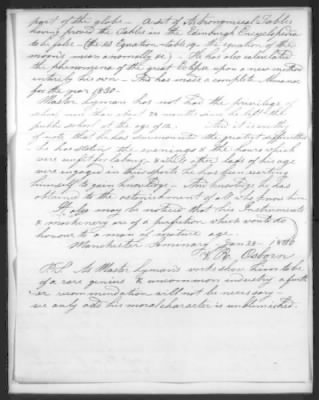 part of the globe - A set of Astronomical Tables
having proved the Tables in the Edinburgh Encyclopedia
to be false - (the 28 Equation - table 19. the equation of the
moon's mean anomally &c) - He has also calculated
the phenomena of the great Eclipse upon a new method
entirely his own - This has made a complete Almanac
for the year 1830 -
Master Lyman has not had the privilege of
school more than about 20 months since he left the
public school at the age of 12. And it is worthy
of note, that he has surmounted the greatest difficulties
he has stolen the evenings & the hours which
were unfit for labor, & while other lads of his age
were engaged in their sports he has been exerting
himself to gain knowledge - This knowledge he has
obtained to the astonishment of all who know him
It also may be noticed that his Instruments
& machinery are of a perfection which would do
honour to a man of mature age.
Manchester Seminary Jan 28 - 1830
Osborn
P.S. As Master Lyman's works show him to be
of a rare genius & uncommon industry a further
recommendation will not be necessary -
we only add his moral character is unblemished.